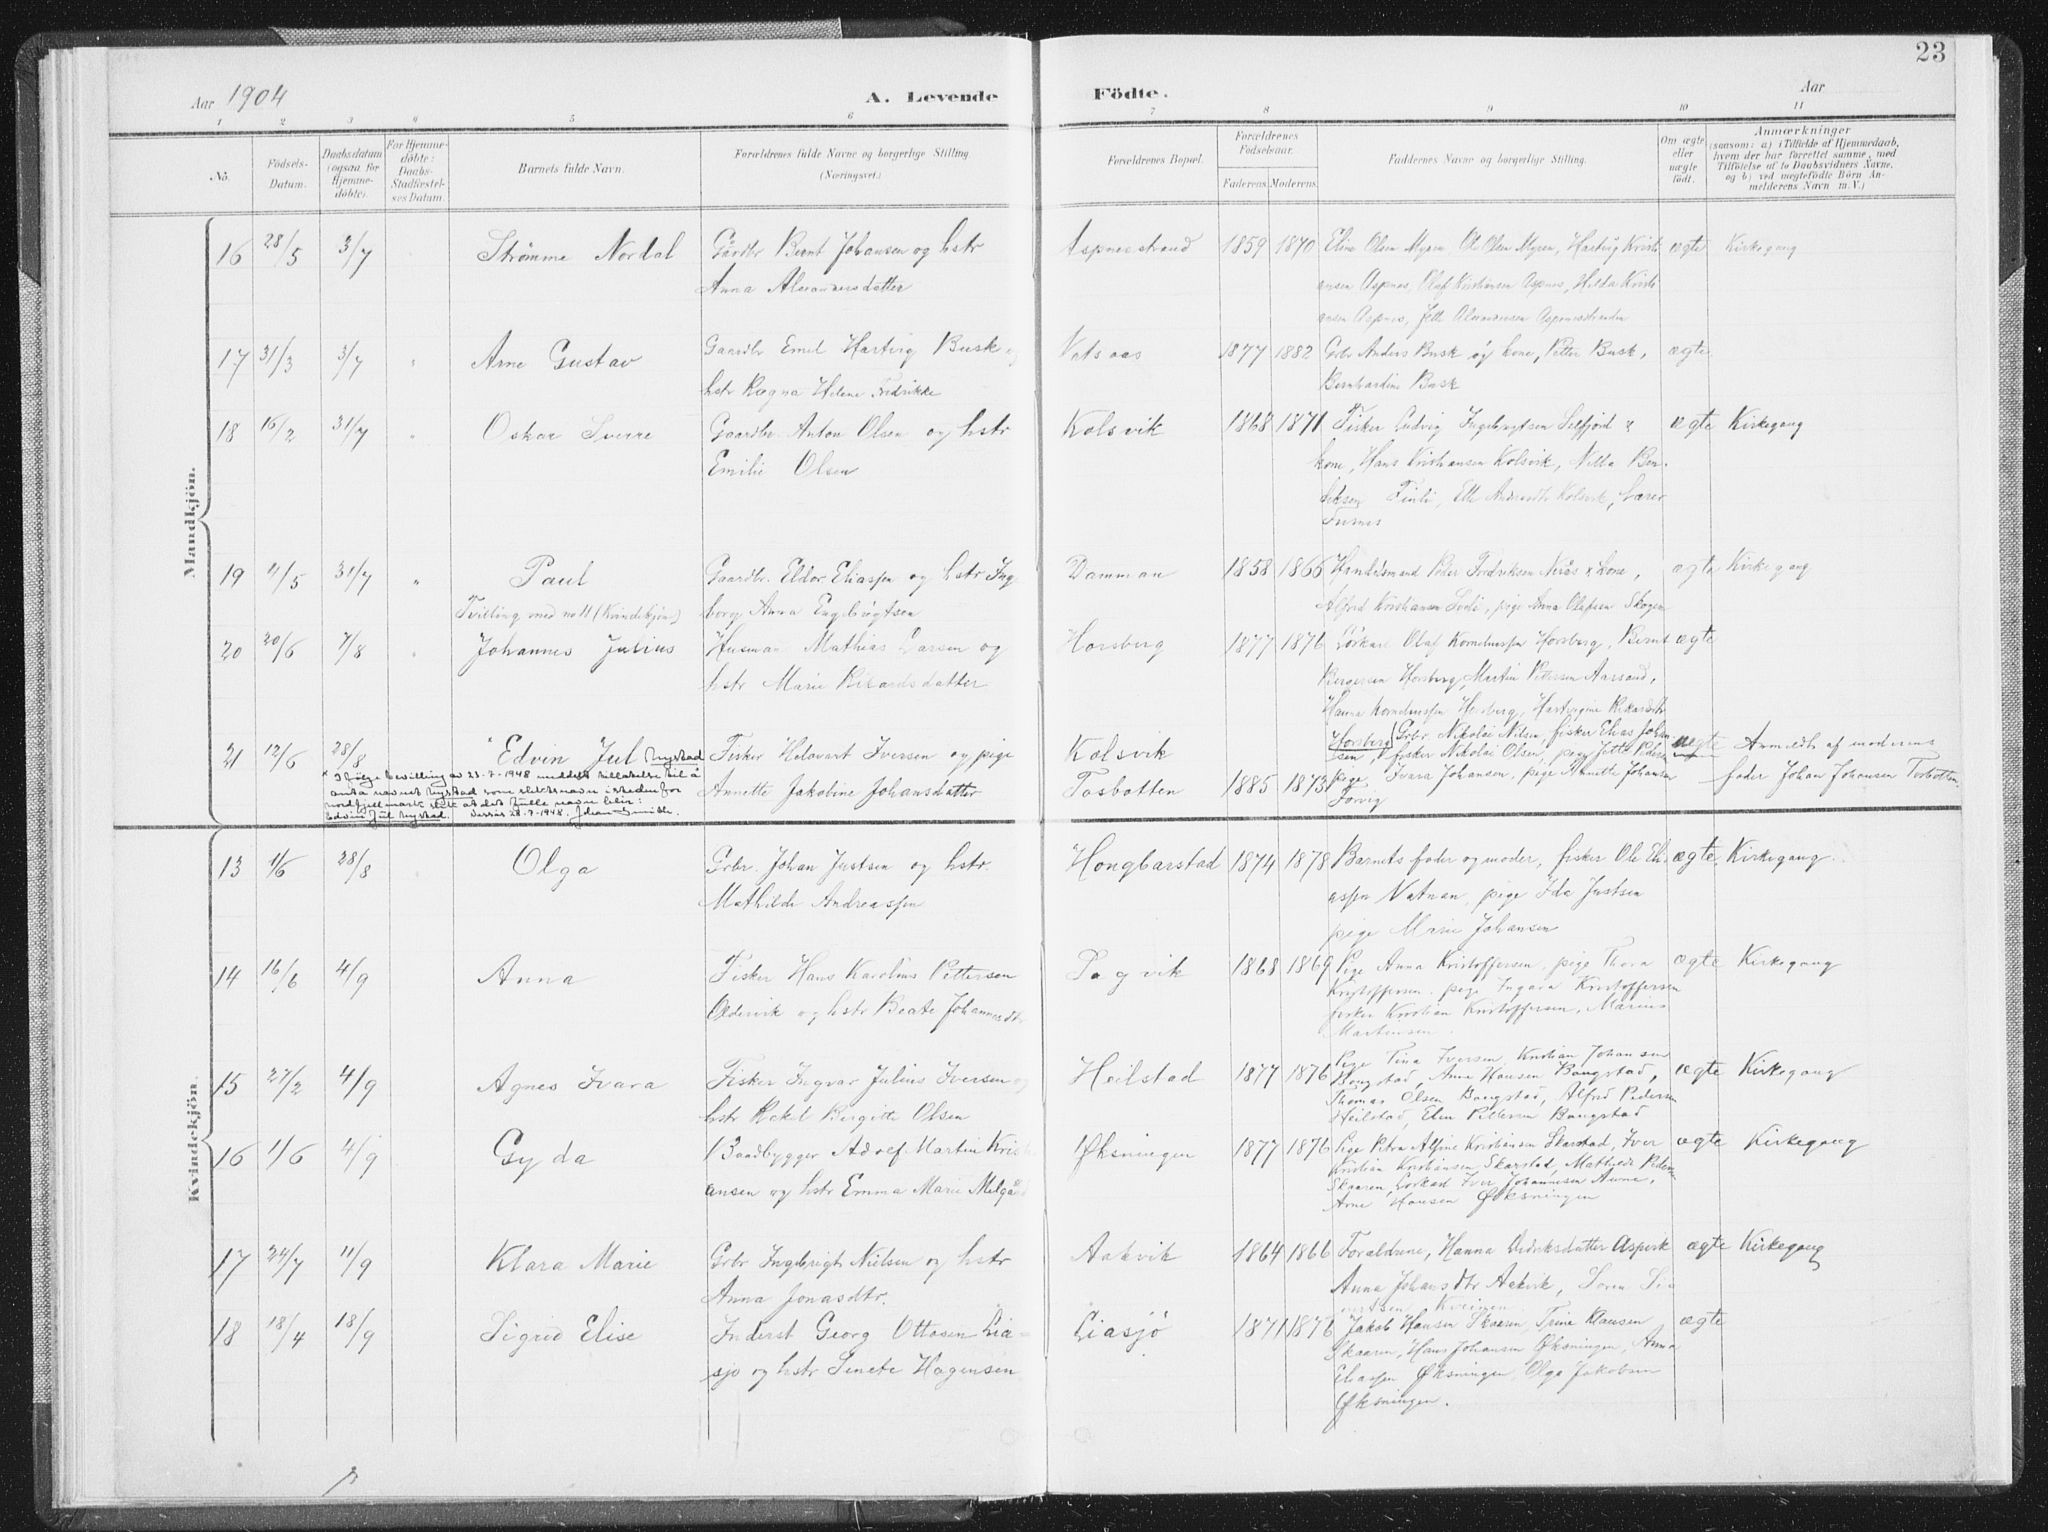 23
Aar 1904
A. Levende Födte.
Aar
1 2 3 4 5 6 7 8 9 10 11
No.
Födsels-Datum.
Daabsdatum (ogsaa for Hjemmedöbte).
For Hjemmedöbte: Daabs-Stadfæstelses Datum.
Barnets fulde Navn.
Forældrenes fulde Navne og borgerlige Stilling (Næringsvei.)
Forældrenes Bopæl.
Forældrenes Födselsaar.
Faderens Moderens.
Faddernes Navne og borgerlige Stilling.
Om ægte eller uægte födt.
Anmærkninger
(saasom: a) i Tilfælde af Hjemmedaab, hvem der har forrettet samme, med Tilföielse af to Daabsvidners Navne, og b) ved uægtefödte Börn Anmelderens Navn m. V.)
Mandkjön.
16 28/5 3/7 Strømme Nordal Gårdbr Bernt Johansen og hstr Aspnesstrand 1859 1870 Eline Olsen Myren, Ole Olsen Myren, Hartvig Kristi ægte Kirkegang
Anna Alexandersdatter ansen Aspnes, Olaf Kristiansen Aspnes, Hilda Kristi
ansen Aspnes, Jette Aspnesstranden
17 31/3 3/7 " Arne Gustav Gaardbr Emil Hartvig Busk og Vatsaas 1877 1882 Grbr Anders Busk og kone, Petter Busk, ægte
hstr Ragna Helene Fredrikke Bernhardine Busk
18 16/2 31/7 " Oskar Sverre Gaardbr. Anton Olsen og hstr Kolsvik 1868 1871 Fisker Ludvig Ingebrigtsen Selfjord & ægte Kirkegang
Emilie Olsen kone, Hans Kristiansen Kolsvik, Nilla Ben-
Kolsvik, Lærer
19 11/5 31/7 " Paul Gaardbr. Eldor Eliassen og hstr Ing Damman 1858 1866 Peder Fredriksen & kone, ægte Kirkegang
Tvilling med no 11 (Kvindekjøn) borg Anna Engebrigtsen Alfred Kristiansen pige Anna Olafsen Skogen
20 20/6 7/8 " Johannes Julius Husman Mathias Larsen og Horsberg 1877 1876 Olaf Korneliussen Horsberg, Bernt ægte
hstr Marie Rikardsdatter Bergersen Horsberg, Martin Pettersen Aarsand,
Hanna Korneliussen Horsberg, Hartvigine Rikardsdtr
Horsberg
21 12/6 28/8 Edvin Jul Nystad Fisker Helovart Iversen og pige Kolsvik Grbr. Nikolai Nilsen, fisker Elias Johan uægte Anmeldt af moderens
sen, fisker Nikolai Olsen, pige Jette Peders
Annette Jakobine Johansdatter Tosbotten 1885 1873 pige Ivara Johansen, pige Annette Johansen fader Johan Johansen Tosbotten.
Torvig
I følge bevilling av 23-7-1948 meddelt tillatelse til å
anta navnet Nystad som slektsnavn i steden for
Nordfjellmark slik at det fulle navn blir:
Edvin Jul Nystad. 28-7-1948. Johan
Kvindekjön.
13 11/6 28/8 Olga Grbr. Johan Justsen og hstr. Hongbarstad 1874 1878 Barnets fader og moder, fisker Ole Eli ægte Kirkegang.
Mathilde Andreassen assen Vatnan, pige Ida Justsen
pige Marie Johansen
14 16/6 4/9 Anna Fisker Hans Karolius Pettersen 1868 1869 Pige Anna Kristoffersen, pige Thora ægte Kirkegang
Oldervik og hstr Beate Johannesdtr Kristoffersen, pige Ingara Kristoffersen
fisker Kristian Kristoffersen, Marius
Martensen.
15 27/2 4/9 Agnes Ivara Fisker Ingvar Julius Iversen og Heilstad 1877 1876 Pige Tina Iversen, Kristian Johansen ægte Kirkegang
hstr Rakel Birgitte Olsen Bangstad, Anne Hansen Bangstad,
Thomas Olsen Bangstad, Alfred Pedersen
Heilstad, Elen Pettersen Bangstad
16 1/6 4/9 Gyda Baadbygger Adolf Martin Kristi Øksningen 1877 1876 Pige Petra Alfine Kristiansen Skarstad, Iver ægte Kirkegang
ansen og hstr Emma Marie Melgård Kristian Kristiansen Skarstad, Mathilde Peders
Skaaren, Iver Johannesen Aune,
Arne Hansen Øksningen
17 24/7 11/9 Klara Marie Grbr Ingebrigt Nielsen og hstr Aakvik 1864 1866 Forældrene, Hanna Didriksdatter ægte Kirkegang
Anna Jonasdtr. Anna Johansdtr Aakvik, Søren Si
18 18/4 18/9 Sigrid Elise Inderst Georg Ottosen Lia- Liasjö 1871 1876 Jakob Hansen Skaaren, Trine Klausen ægte
sjö og hstr Senete Hagensen Skaaren, Hans Johansen Øksningen, Anna
Eliassen Øksningen, Olga Jakobsen
Øksningen.